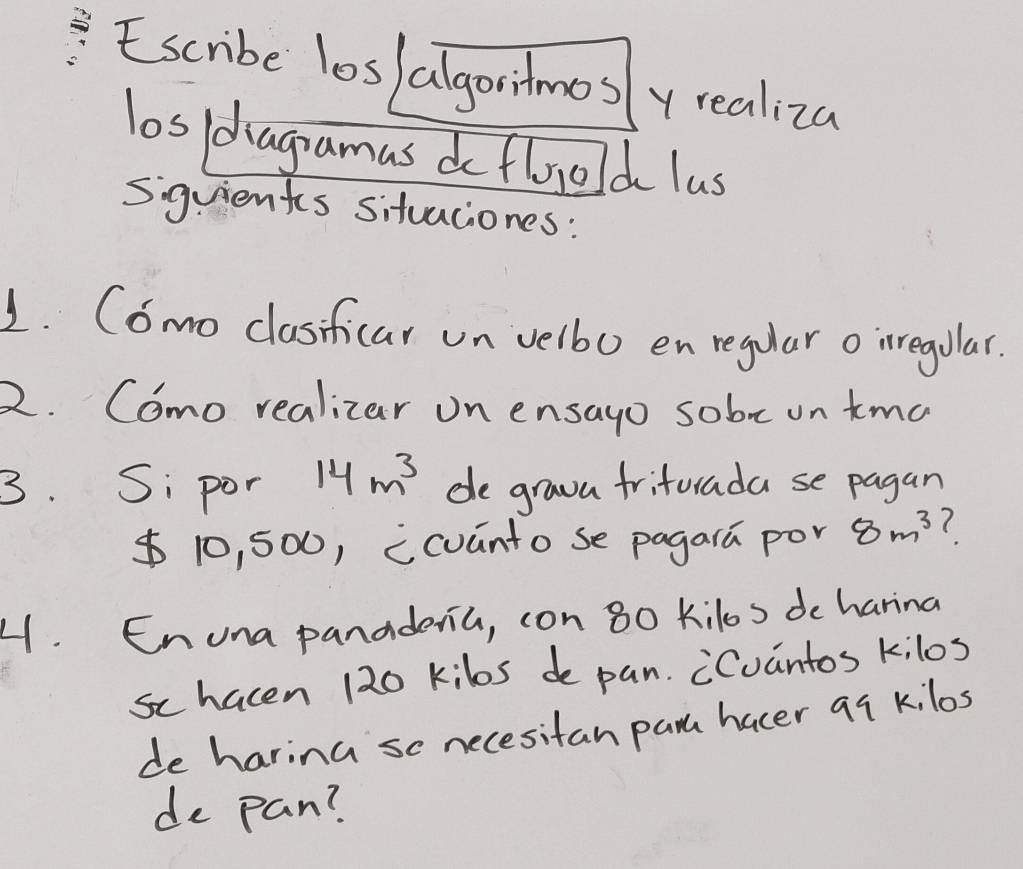 Escribe los algoritmos y realiza
los diagramas de flujo de las
siguientes situaciones:
1. Cómo clasificar un verbo en regular o irregular.
2. Cómo realizar un ensayo sobre un tema
3. Si por 14 m³ de grava triturada se pagan
$ 10,500, ¿cuánto se pagará por 8 m³?
4. En una panadería, con 80 kilos de harina
se hacen 120 kilos de pan. ¿Cuántos kilos
de harina se necesitan para hacer 99 kilos
de pan?